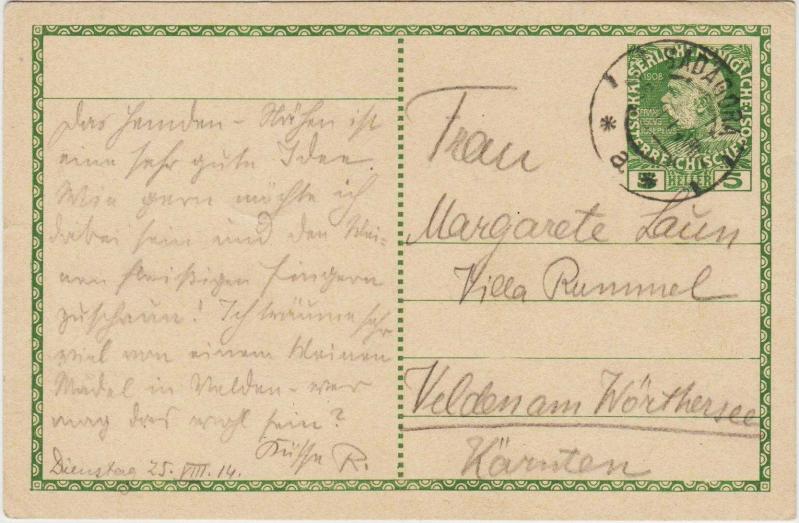 Das Hemden-Nähen ist
eine sehr gute Idee.
Wie gern möchte ich
dabei sein und den klei-
nen fleißigen Fingern
zuschaun! Ich träume sehr
viel von einem kleinen
Mädel in Velden - wer
mag das wohl sein?
Küsse R.
Dienstag 25. VIII. 14.
Frau
Margarete Laun
Villa Rummel
Velden am Wörthersee
Kärnten
KAISERLICHE KÖNIGLICHE
ÖSTERREICHISCHE POST
1908
FRANC
IOSEPHUS
5 HELLER 5
SADAGORA
* a *